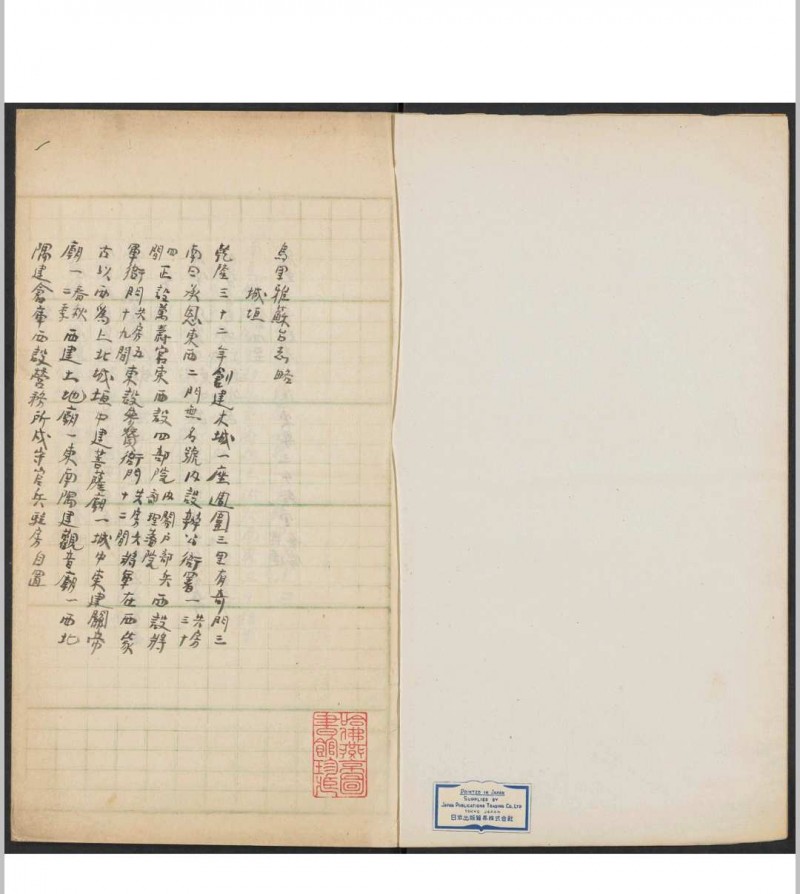 烏里雅蘇台志略
城垣
乾隆三十二年創建木城一座周圍三里有奇門三
南曰承恩東西二門無名號內設辦公衙署一共房三十
四間正設萬壽宮東西設四部院內閣戶部兵理藩院西設將
軍衙門共房五十九間東設參贊衙門共房六十二間將軍在西蒙
古以西為上北城垣中建菩薩廟一城中東建關帝
廟一春秋二季西建土地廟一東南隅建觀音廟一西北
隅建倉庫西設營務所戍守官兵駐房自置
哈佛燕京圖
書館珍
PRINTED IN JAPAN
SUPPLIED BY
JAPAN PUBLICATIONS TRADING CO., LTD
TOKYO JAPAN
日本出版貿易株式会社